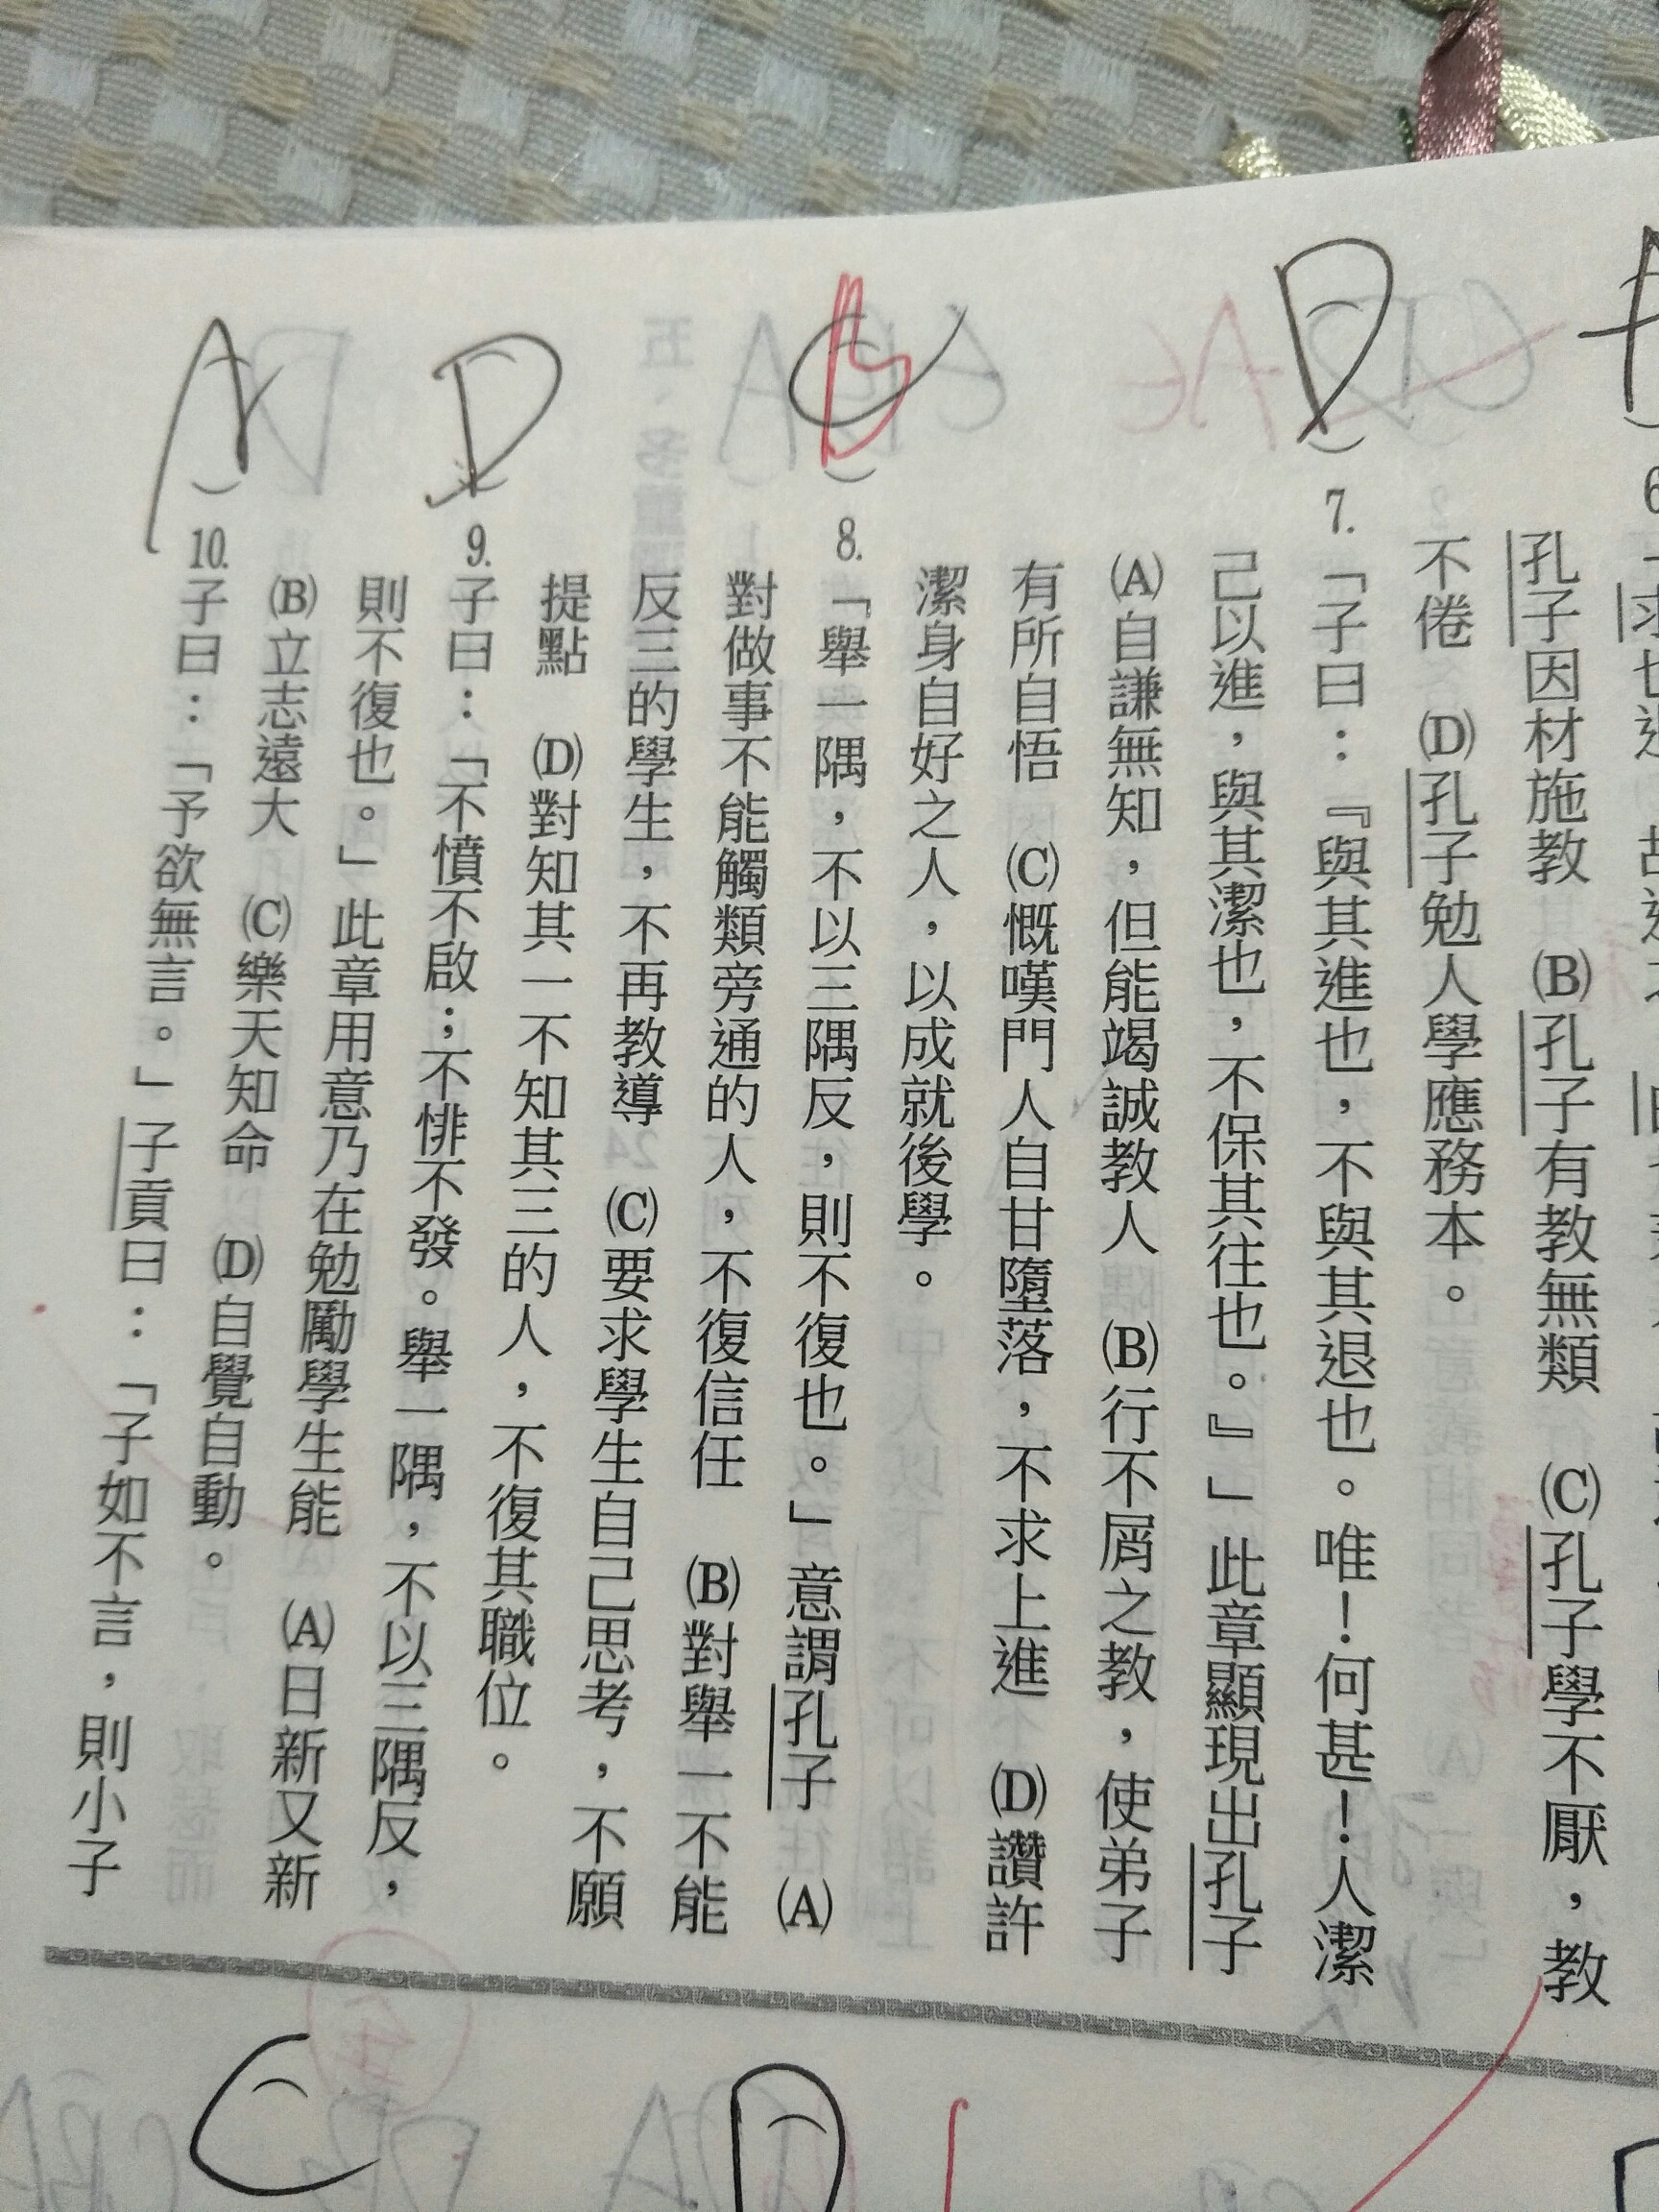 孔子因材施教　(B)孔子有教無類　(C)孔子學不厭，教
不倦　(D)孔子勉人學應務本。
D
7.「子曰：『與其進也，不與其退也。唯！何甚！人潔
己以進，與其潔也，不保其往也。』」此章顯現出孔子
(A)自謙無知，但能竭誠教人　(B)行不屑之教，使弟子
有所自悟　(C)慨嘆門人自甘墮落，不求上進　(D)讚許
潔身自好之人，以成就後學。
8.「舉一隅，不以三隅反，則不復也。」意謂孔子　(A)
對做事不能觸類旁通的人，不復信任　(B)對舉一不能
反三的學生，不再教導　(C)要求學生自己思考，不願
提點　(D)對知其一不知其三的人，不復其職位。
D
9.子曰：「不憤不啟；不悱不發。舉一隅，不以三隅反，
則不復也。」此章用意乃在勉勵學生能　(A)日新又新
(B)立志遠大　(C)樂天知命　(D)自覺自動。
A
10.子曰：「予欲無言。」子貢曰：「子如不言，則小子
C
D